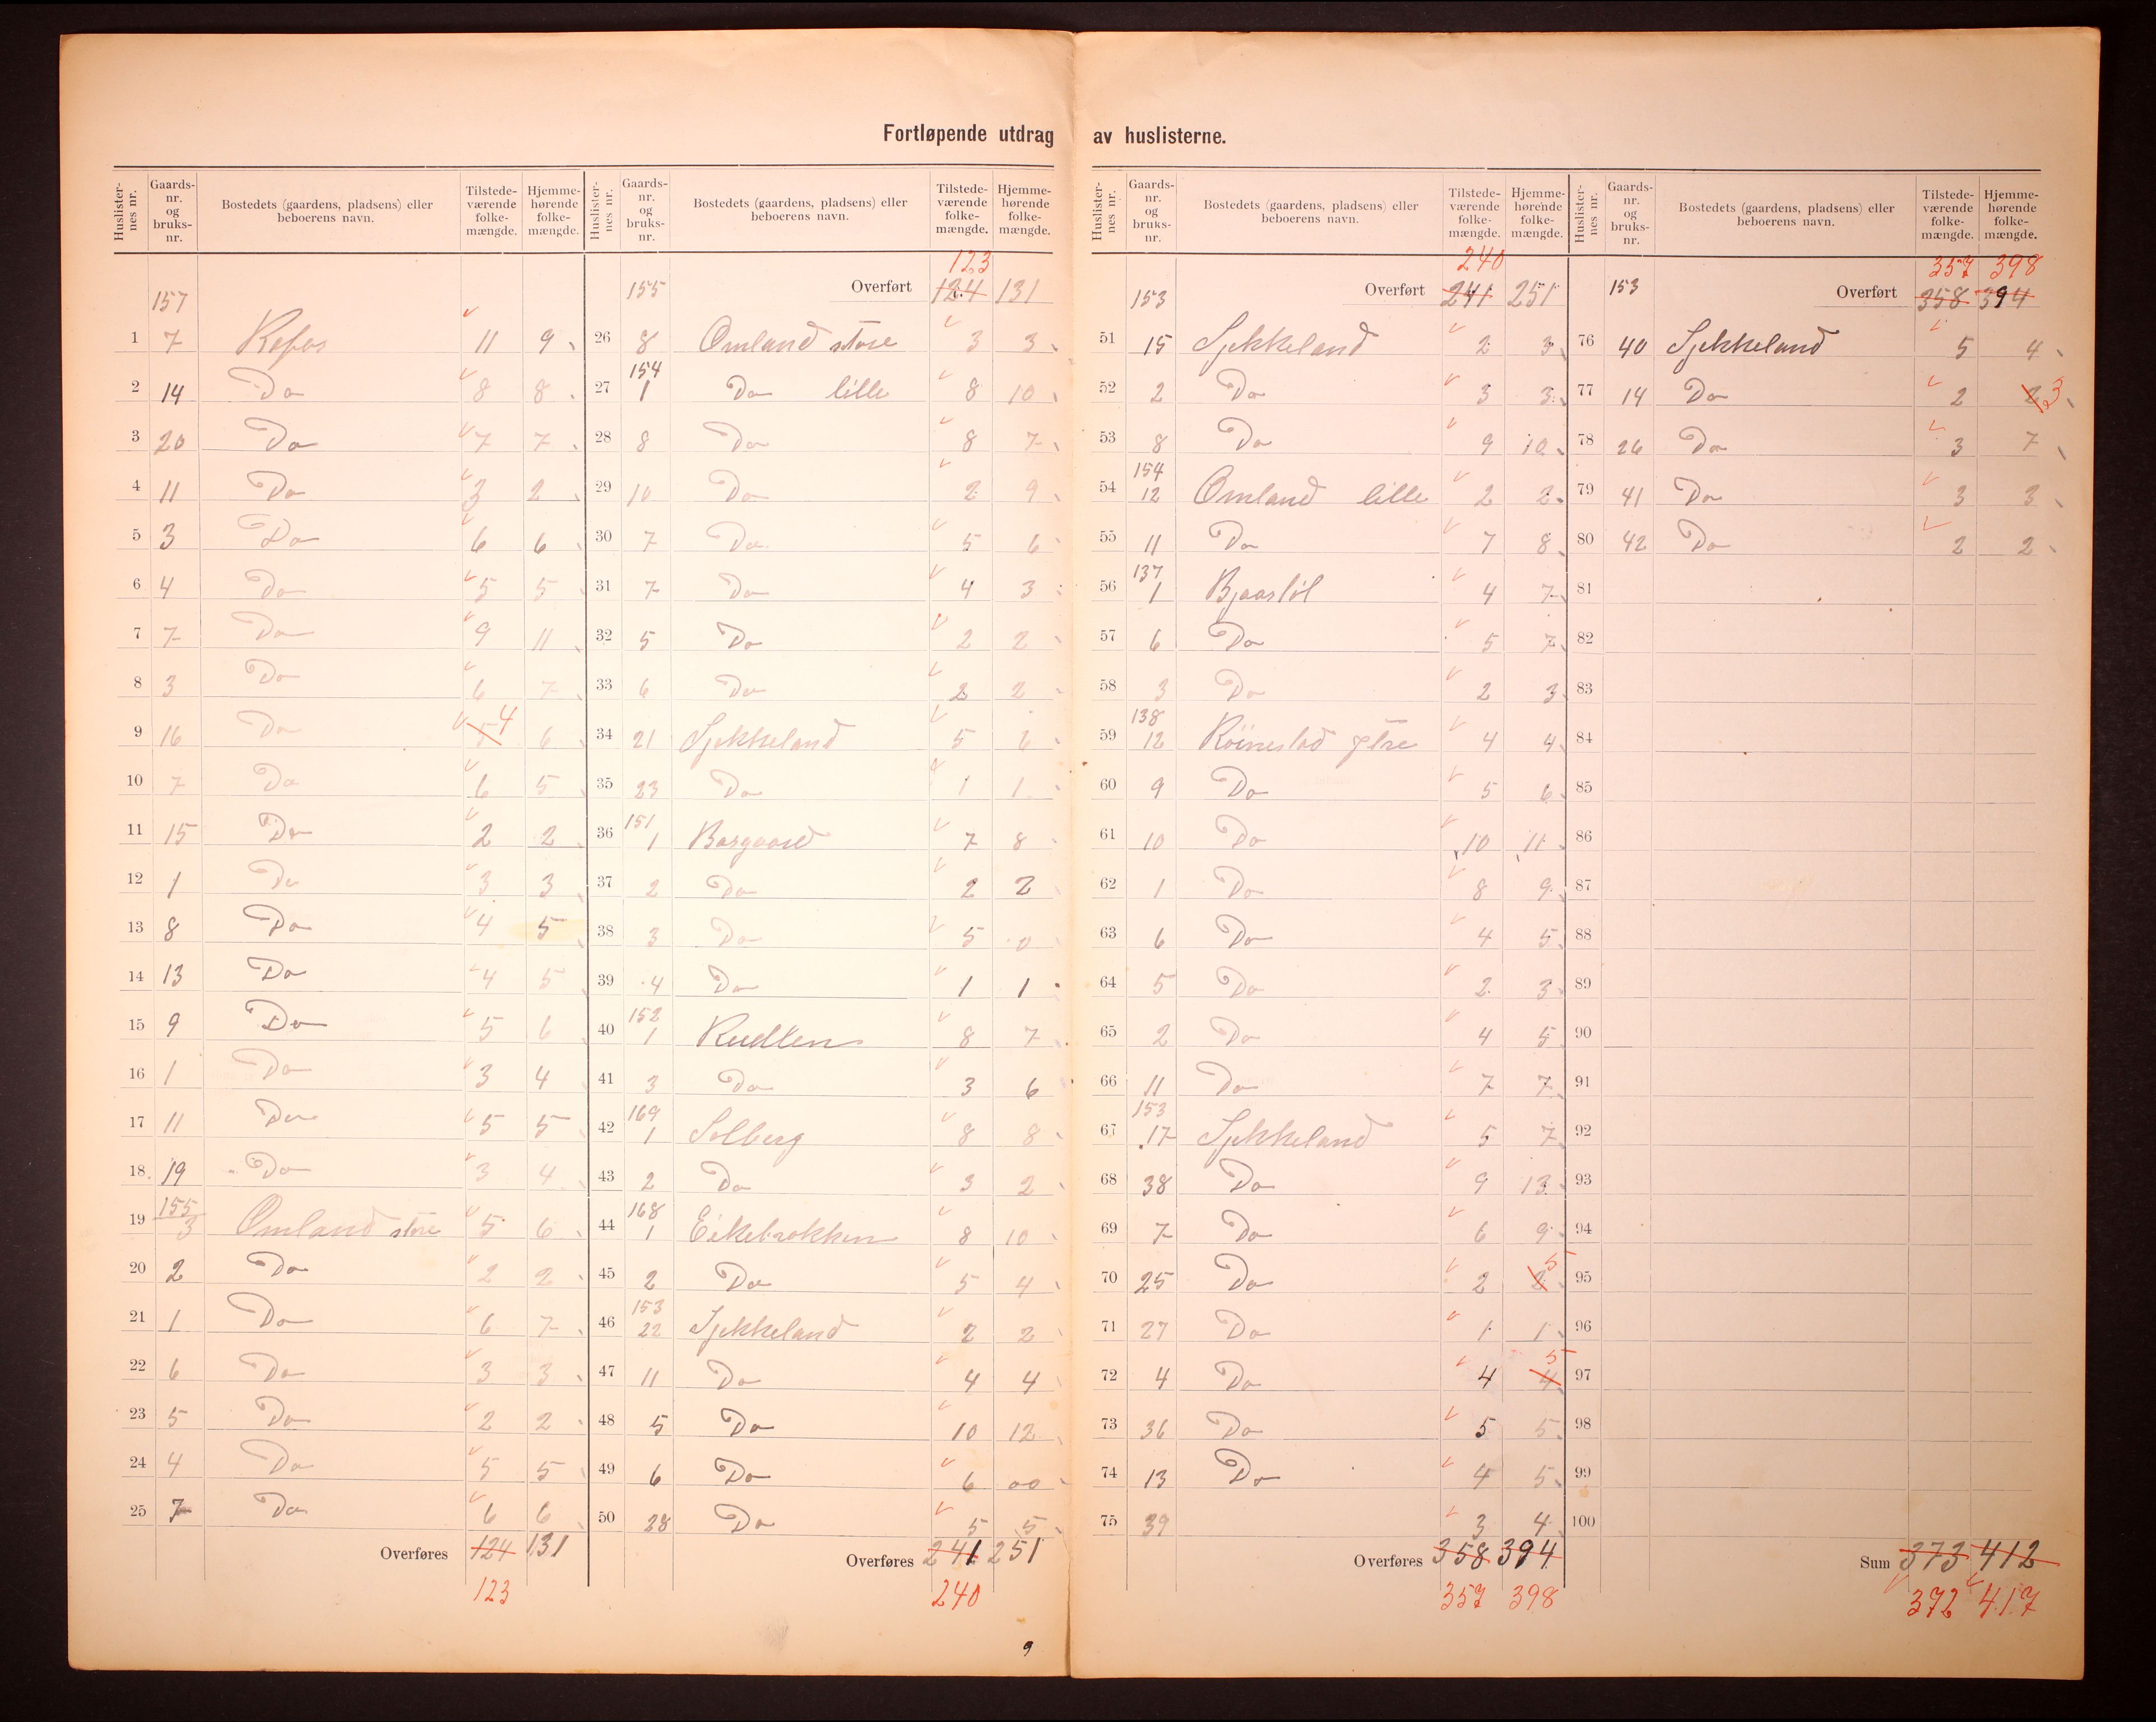 Fortløpende utdrag av huslisterne.
Huslisternes nr. Gaards-nr. og bruks-nr. Bostedets (gaardens, pladsens) eller beboerens navn. Tilstede-værende folke-mængde. Hjemme-hørende folke-mængde.
157
1 7 Refos 11 9
2 14 Do 8 8
3 20 Do 7 7
4 11 Do 3 2
5 3 Do 6 6
6 4 Do 5 5
7 7 Do 9 11
8 3 Do 6 7
9 16 Do 5 4 6
10 7 Do 6 5
11 15 Do 2 2
12 1 Do 3 3
13 8 Do 4 5
14 13 Do 4 5
15 9 Do 5 6
16 1 Do 3 4
17 11 Do 5 5
18 19 Do 3 4
19 155 3 Omland store 5 6
20 2 Do 2 2
21 1 Do 6 7
22 6 Do 3 3
23 5 Do 2 2
24 4 Do 5 5
25 7 Do 6 6
Overføres 124 131
123
Huslisternes nr. Gaards-nr. og bruks-nr. Bostedets (gaardens, pladsens) eller beboerens navn. Tilstede-værende folke-mængde. Hjemme-hørende folke-mængde.
123
155 Overført 124 131
26 8 Omland store 3 3
27 154 1 Do lille 8 10
28 8 Do 8 7
29 10 Do 2 9
30 7 Do 5 6
31 7 Do 4 3
32 5 Do 2 2
33 6 Do 2 2
34 21 Sjekkeland 5 6
35 23 Do 1 1
36 151 1 Basgaard 7 8
37 2 Do 2 2
38 3 Do 5 0
39 4 Do 1 1
40 152 1 Rudlen 8 7
41 3 Do 3 6
42 169 1 Solberg 8 8
43 2 Do 3 2
44 168 1 Eikebrokken 8 10
45 2 Do 5 4
46 153 22 Sjekkeland 2 2
47 11 Do 4 4
48 5 Do 10 12
49 6 Do 6 00
50 28 Do 5 5
Overføres 241 251
240
9
Huslisternes nr. Gaards-nr. og bruks-nr. Bostedets (gaardens, pladsens) eller beboerens navn. Tilstede-værende folke-mængde. Hjemme-hørende folke-mængde.
240
153 Overført 241 251
51 15 Sjekkeland 2 3
52 2 Do 3 3
53 8 Do 9 10
54 154 12 Omland lille 2 2
55 11 Do 7 8
56 137 1 Bjaastøl 4 7
57 6 Do 5 7
58 3 Do 2 3
59 138 12 Röinestad ytre 4 4
60 9 Do 5 6
61 10 Do 10 11
62 1 Do 8 9
63 6 Do 4 5
64 5 Do 2 3
65 2 Do 4 5
66 11 Do 7 7
67 153 17 Sjekkeland 5 7
68 38 Do 9 13
69 7 Do 6 9
70 25 Do 2 2 5
71 27 Do 1 1
72 4 Do 4 4 5
73 36 Do 5 5
74 13 Do 4 5
75 39 3 4
Overføres 358 394
357 398
Huslisternes nr. Gaards-nr. og bruks-nr. Bostedets (gaardens, pladsens) eller beboerens navn. Tilstede-værende folke-mængde. Hjemme-hørende folke-mængde.
357 398
153 Overført 358 394
76 40 Sjekkeland 5 4
77 14 Do 2 2 3
78 26 Do 3 7
79 41 Do 3 3
80 42 Do 2 2
81
82
83
84
85
86
87
88
89
90
91
92
93
94
95
96
97
98
99
100
Sum 373 412
372 417